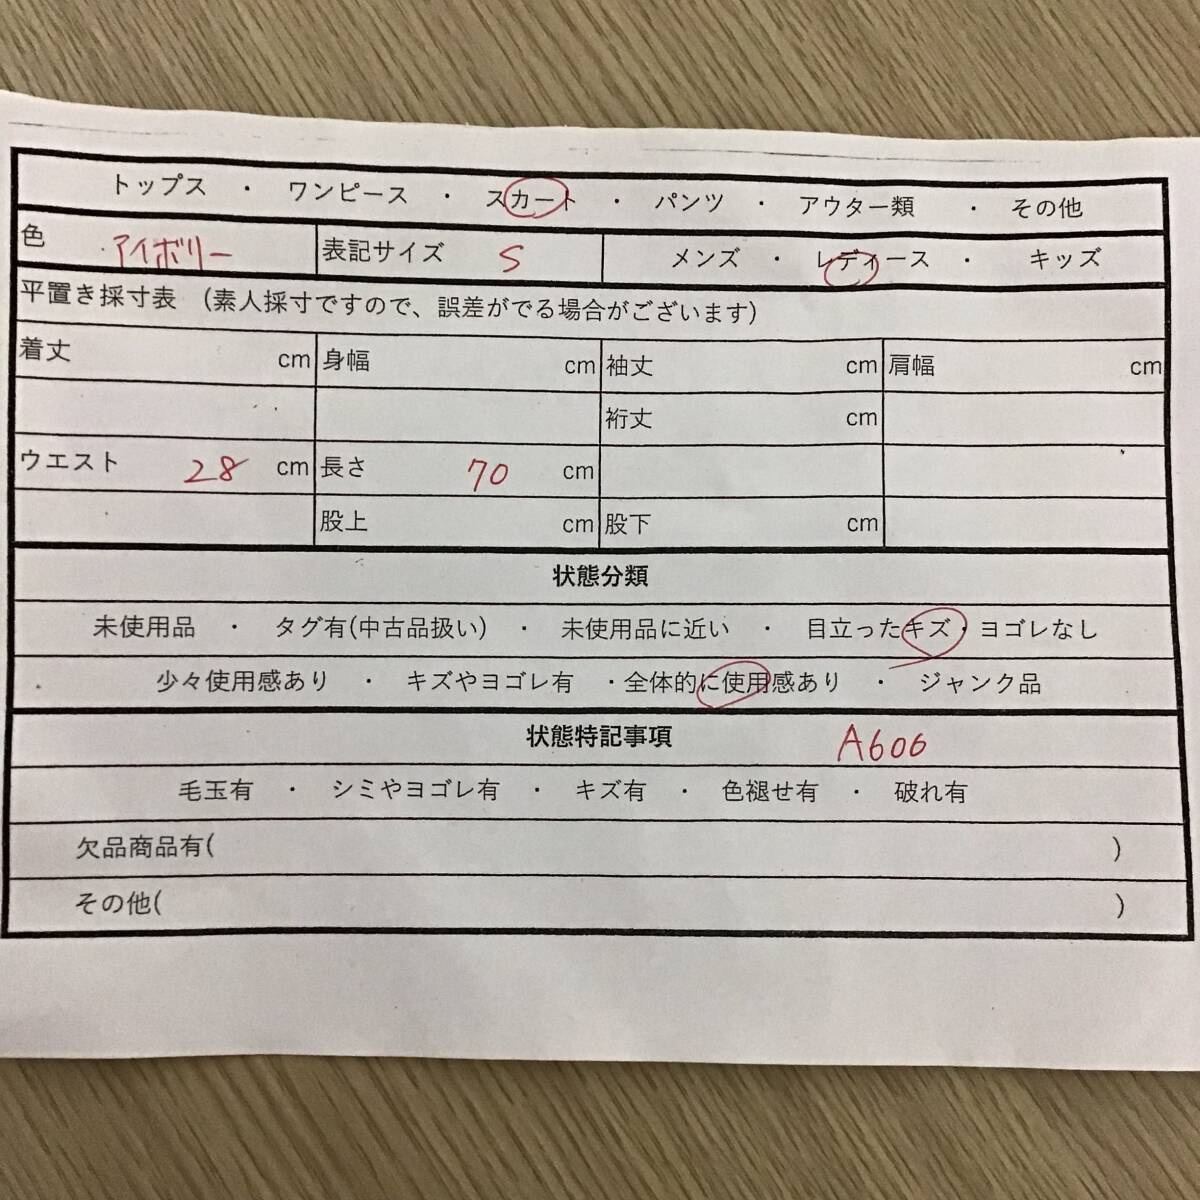 トップス ・ ワンピース ・ スカート ・ パンツ ・ アウター類 ・ その他
色 アイボリー 表記サイズ S メンズ ・ レディース ・ キッズ
平置き採寸表 (素人採寸ですので、誤差がでる場合がございます)
着丈 cm 身幅 cm 袖丈 cm 肩幅 cm
裄丈 cm
ウエスト 28 cm 長さ 70 cm
股上 cm 股下 cm
状態分類
未使用品 ・ タグ有(中古品扱い) ・ 未使用品に近い ・ 目立ったキズ・ヨゴレなし
少々使用感あり ・ キズやヨゴレ有 ・全体的に使用感あり ・ ジャンク品
状態特記事項 A606
毛玉有 ・ シミやヨゴレ有 ・ キズ有 ・ 色褪せ有 ・ 破れ有
欠品商品有( )
その他( )